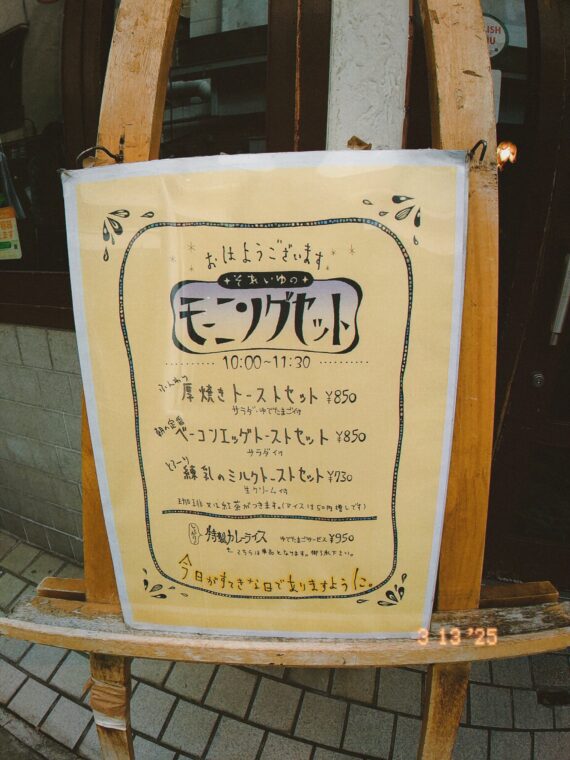 おはようございます
それいゆの
モーニングセット
10:00~11:30
ふんわり
厚焼きトーストセット ¥850
サラダ・ゆでたまご付
朝の定番
ベーコンエッグトーストセット ¥850
サラダ付
とろ〜り
練乳のミルクトーストセット ¥730
生クリーム付
珈琲又は紅茶がつきます。(アイスは50円増しです)
特製カレーライス ゆでたまごサービス ¥950
こちらは単品となります。御了承下さい。
今日がすてきな日でありますように。
3 13 '25